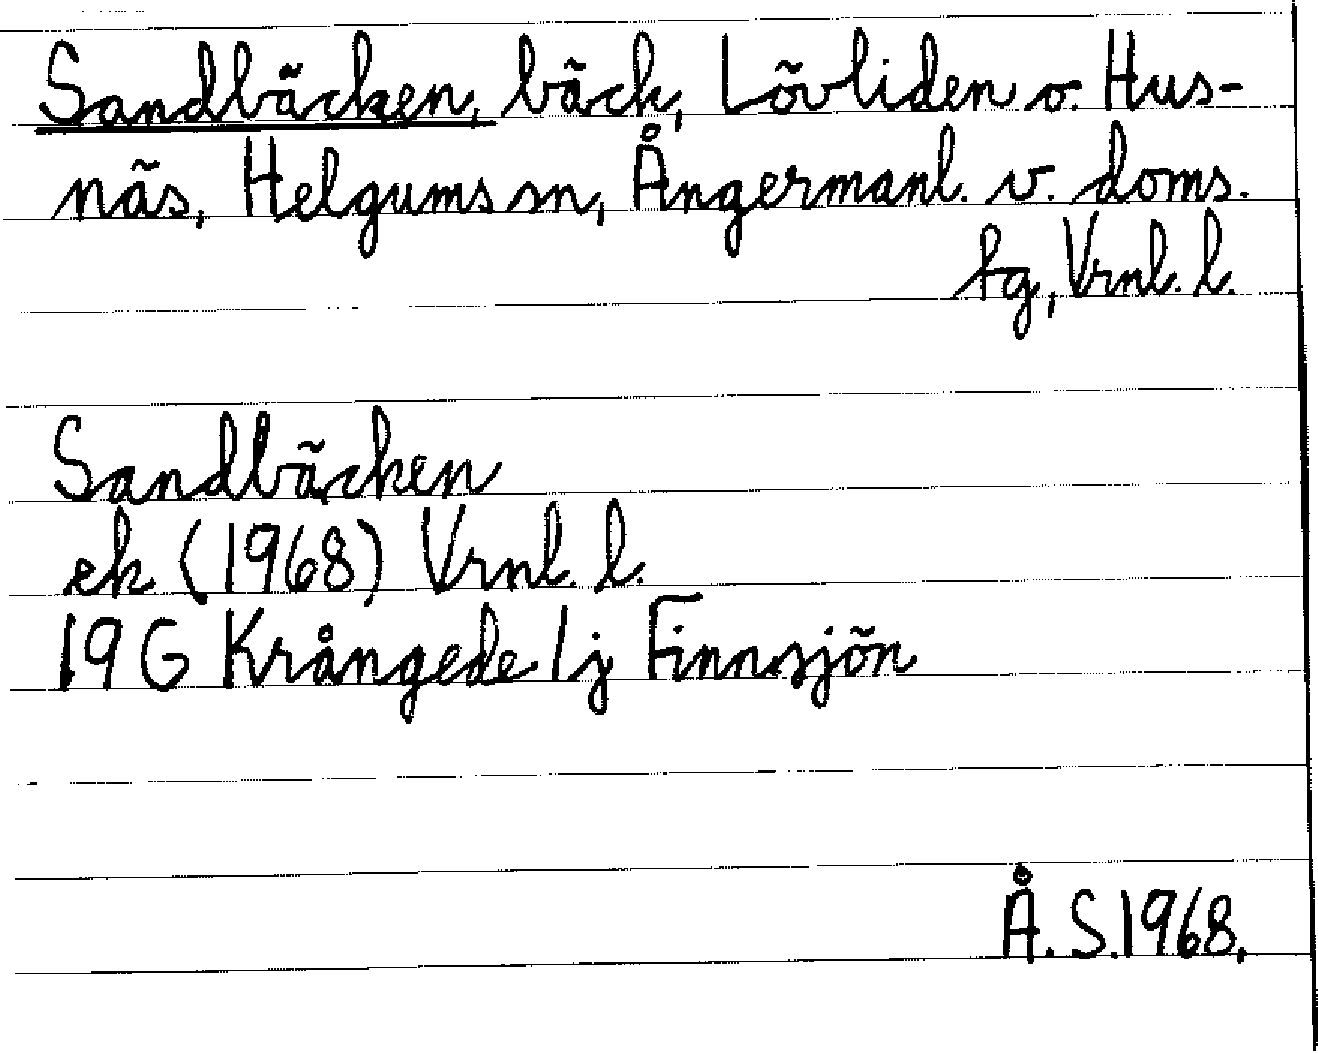 Sandbäcken, bäck, Lövliden o. Hus-
näs, Helgums sn, Ångermanl. v. doms.
fg, Vrnl. l.
Sandbäcken
ek (1968) Vrnl. l.
19 G Krångede 1j Finnsjön
Å. S. 1968.